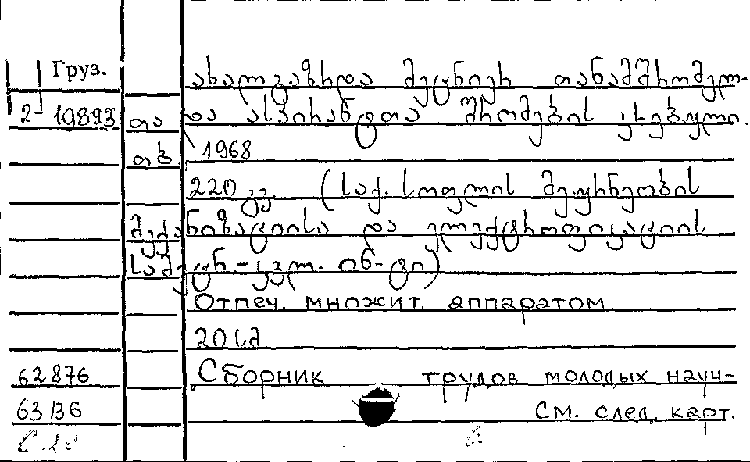 Груз. ახალგაზრდა მეცნიერ თანამშრომელ-
2-19893 თა და ასპირანტთა შრომების კრებული.
თბ 1968
220 გვ. (საქ. სოფლის მეურნეობის
მექანიზაციისა და ელექტროფიკაციის
სამეცნ.-კვლ. ინ-ტი)
Отпеч. множит. аппаратом
20 სმ
62876 Сборник трудов молодых науч-
63136 См. след. карт.